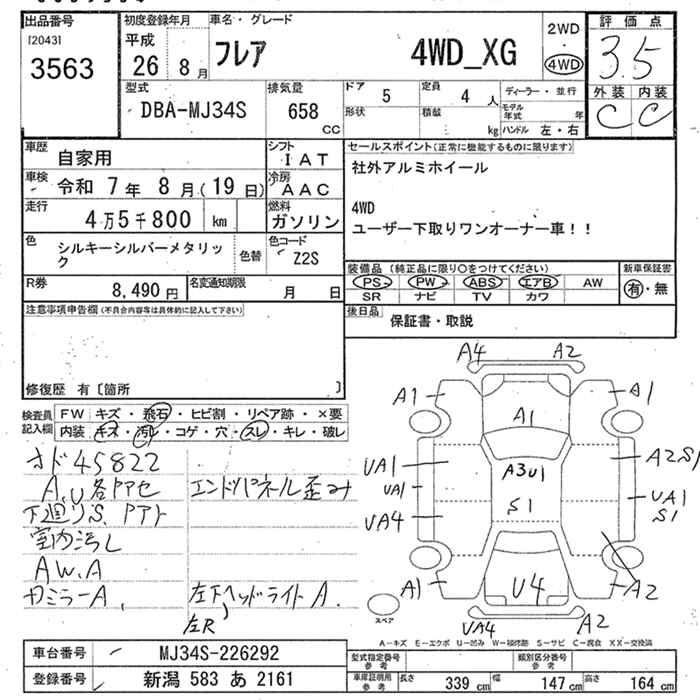 出品番号 初度登録年月 車名・グレード
[2043] 平成 2WD 評価点
3563 26 8月 フレア 4WD_XG ・ 3.5
4WD
型式 排気量 ドア 5 定員 4人 ディーラー・並行 外装 内装
DBA-MJ34S 658 cc 形状 積載 kg モデル年式 年 C C
ハンドル 左・右
車歴 自家用 シフト IAT セールスポイント(正常に機能するものに限ります)
車検 令和 7年 8月(19日) 冷房 AAC 社外アルミホイール
走行 4万5千800 km 燃料 ガソリン 4WD
ユーザー下取りワンオーナー車!!
色 シルキーシルバーメタリック 色替 色コード Z2S
R券 8,490円 名変通知期限 月 日
装備品(純正品に限り○をつけてください) 新車保証書
PS PW ABS エアB AW 有・無
SR ナビ TV カワ
注意事項申告欄(不具合内容等は具体的に記入して下さい)
後日品 保証書・取説
修復歴 有〔箇所 〕
検査員記入欄 FW キズ・飛石・ヒビ割・リペア跡・×要
内装 キズ・汚れ・コゲ・穴・スレ・キレ・破レ
45822
A,U 各 エンドパネル歪み
下廻りS、
室内汚レ
AW.A
ミラーA、 左下ヘッドライトA.
左R
A4 A2
A1 A1 A1
UA1 A3U1 A2S1
UA1 UA1
S1 S1
UA4
A1 U4 A2
UA4 A2
スペア
A-キズ E-エクボ U-凹み W-補修跡 S-サビ C-腐食 XX-交換済
車台番号 MJ34S-226292 型式指定番号 参考 類別区分番号 参考
登録番号 新潟 583 あ 2161 車庫証明用 参考 長さ 339 cm 幅 147 cm 高さ 164 cm